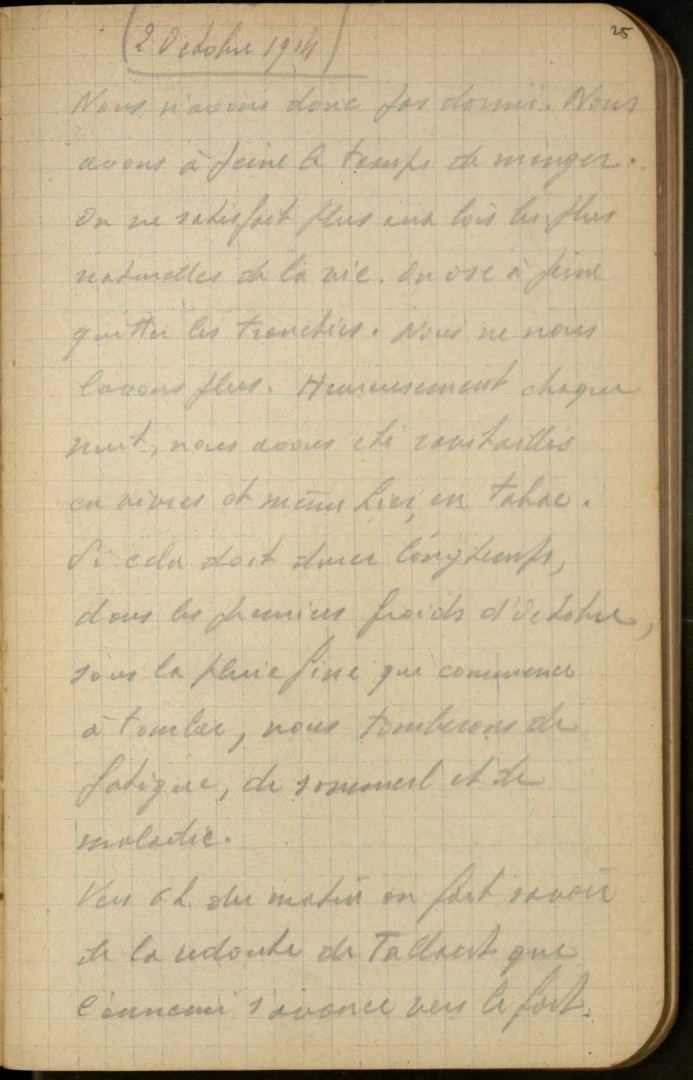 25
2 Octobre 1914
Nous n'avons donc pas dormi. Nous
avons à peine le temps de manger.
On ne satisfait plus aux lois les plus
naturelles de la vie. On ose à peine
quitter les tranchées. Nous ne nous
lavons plus. Heureusement chaque
nuit, nous avons été ravitaillés
en vivres et même hier, en tabac.
Si cela doit durer longtemps,
dans les premiers froids d'Octobre,
sous la pluie fine qui commence
à tomber, nous tomberons de
fatigue, de sommeil et de
maladie.
Vers 6 h. du matin on fait savoir
de la redoute de Tallaert que
l'ennemi s'avance vers le fort.